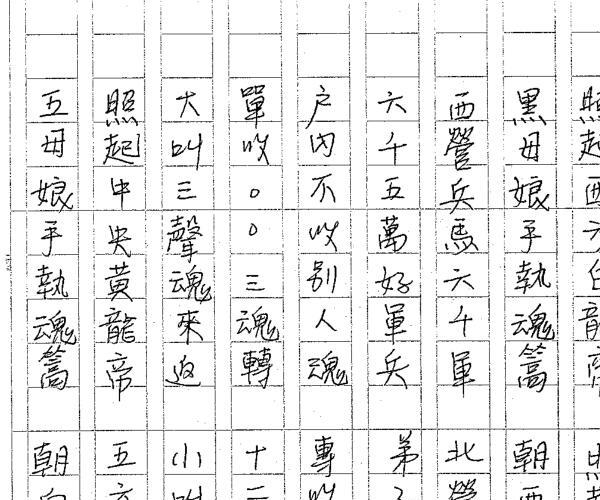 照起西方白龍帝
黑母娘手執魂篙 朝西
西營兵馬六千軍 北營
六千五萬好軍兵 弟
户内不收別人魂 專收
單收○○三魂轉 十二
大叫三聲魂來返 小叫
照起中央黃龍帝 五
五母娘手執魂篙 朝